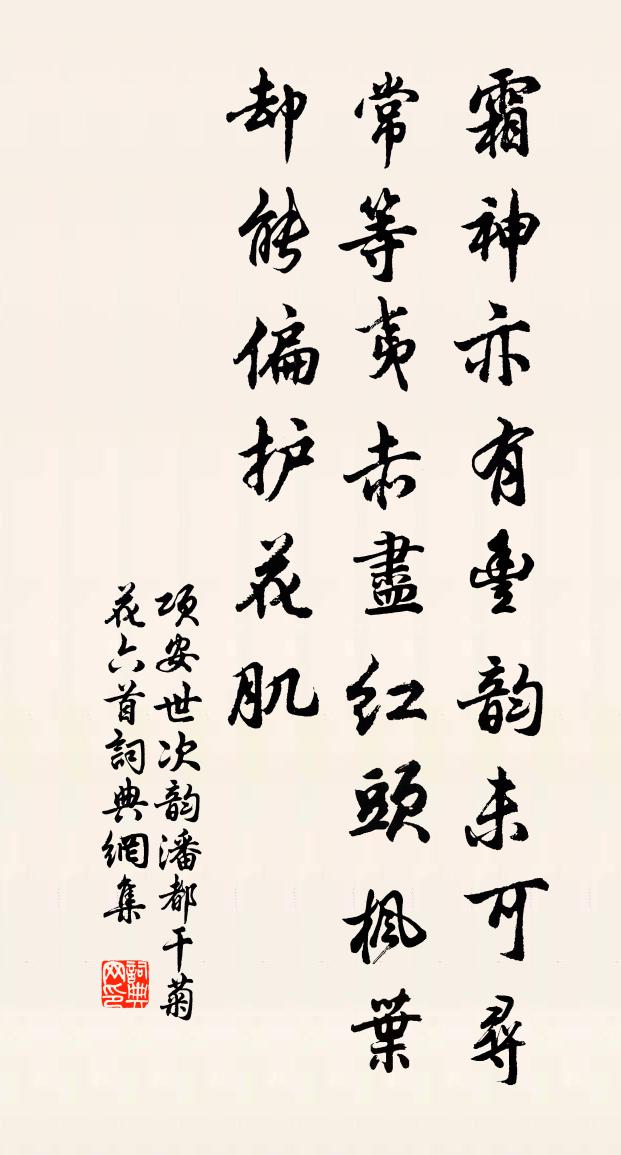 霜神亦有豐韵未可尋
常等夷赤盡红頭楓葉
却能偏护花肌
项安世次韵潘都干菊
花六首詞典網集
詞典网印